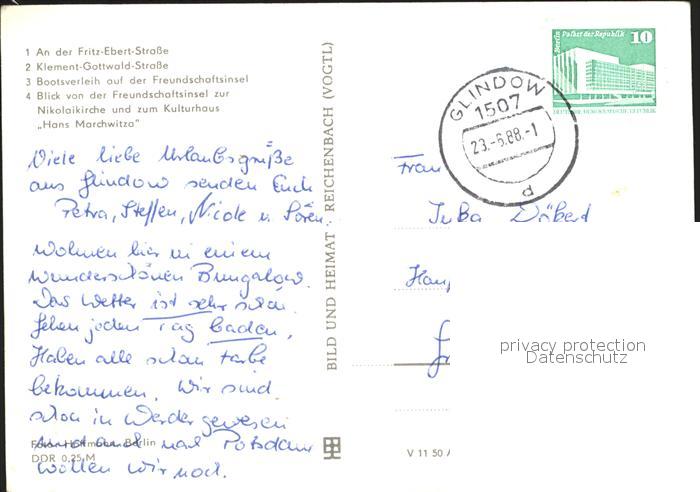 1 An der Fritz-Ebert-Straße
2 Klement-Gottwald-Straße
3 Bootsverleih auf der Freundschaftsinsel
4 Blick von der Freundschaftsinsel zur
Nikolaikirche und zum Kulturhaus
„Hans Marchwitza"
Viele liebe Urlaubsgrüße
aus Glindow senden Euch
Petra, Steffen, Nicole u. Sören.
Wohnen hier in einem
wunderschönen Bungalow.
Das Wetter ist sehr schön.
Gehen jeden Tag baden,
Haben alle schon Farbe
bekommen. Wir sind
schon in Werder gewesen
und auch nach Potsdam
wollen wir noch.
Foto: Hoffmann, Berlin
DDR 0,25 M
BILD UND HEIMAT REICHENBACH (VOGTL)
GLINDOW
1507
23.-6.88.-1
d
Berlin Palast der Republik 10
DEUTSCHE DEMOKRATISCHE REPUBLIK
Frau
Jutta
V 11 50
privacy protection
Datenschutz